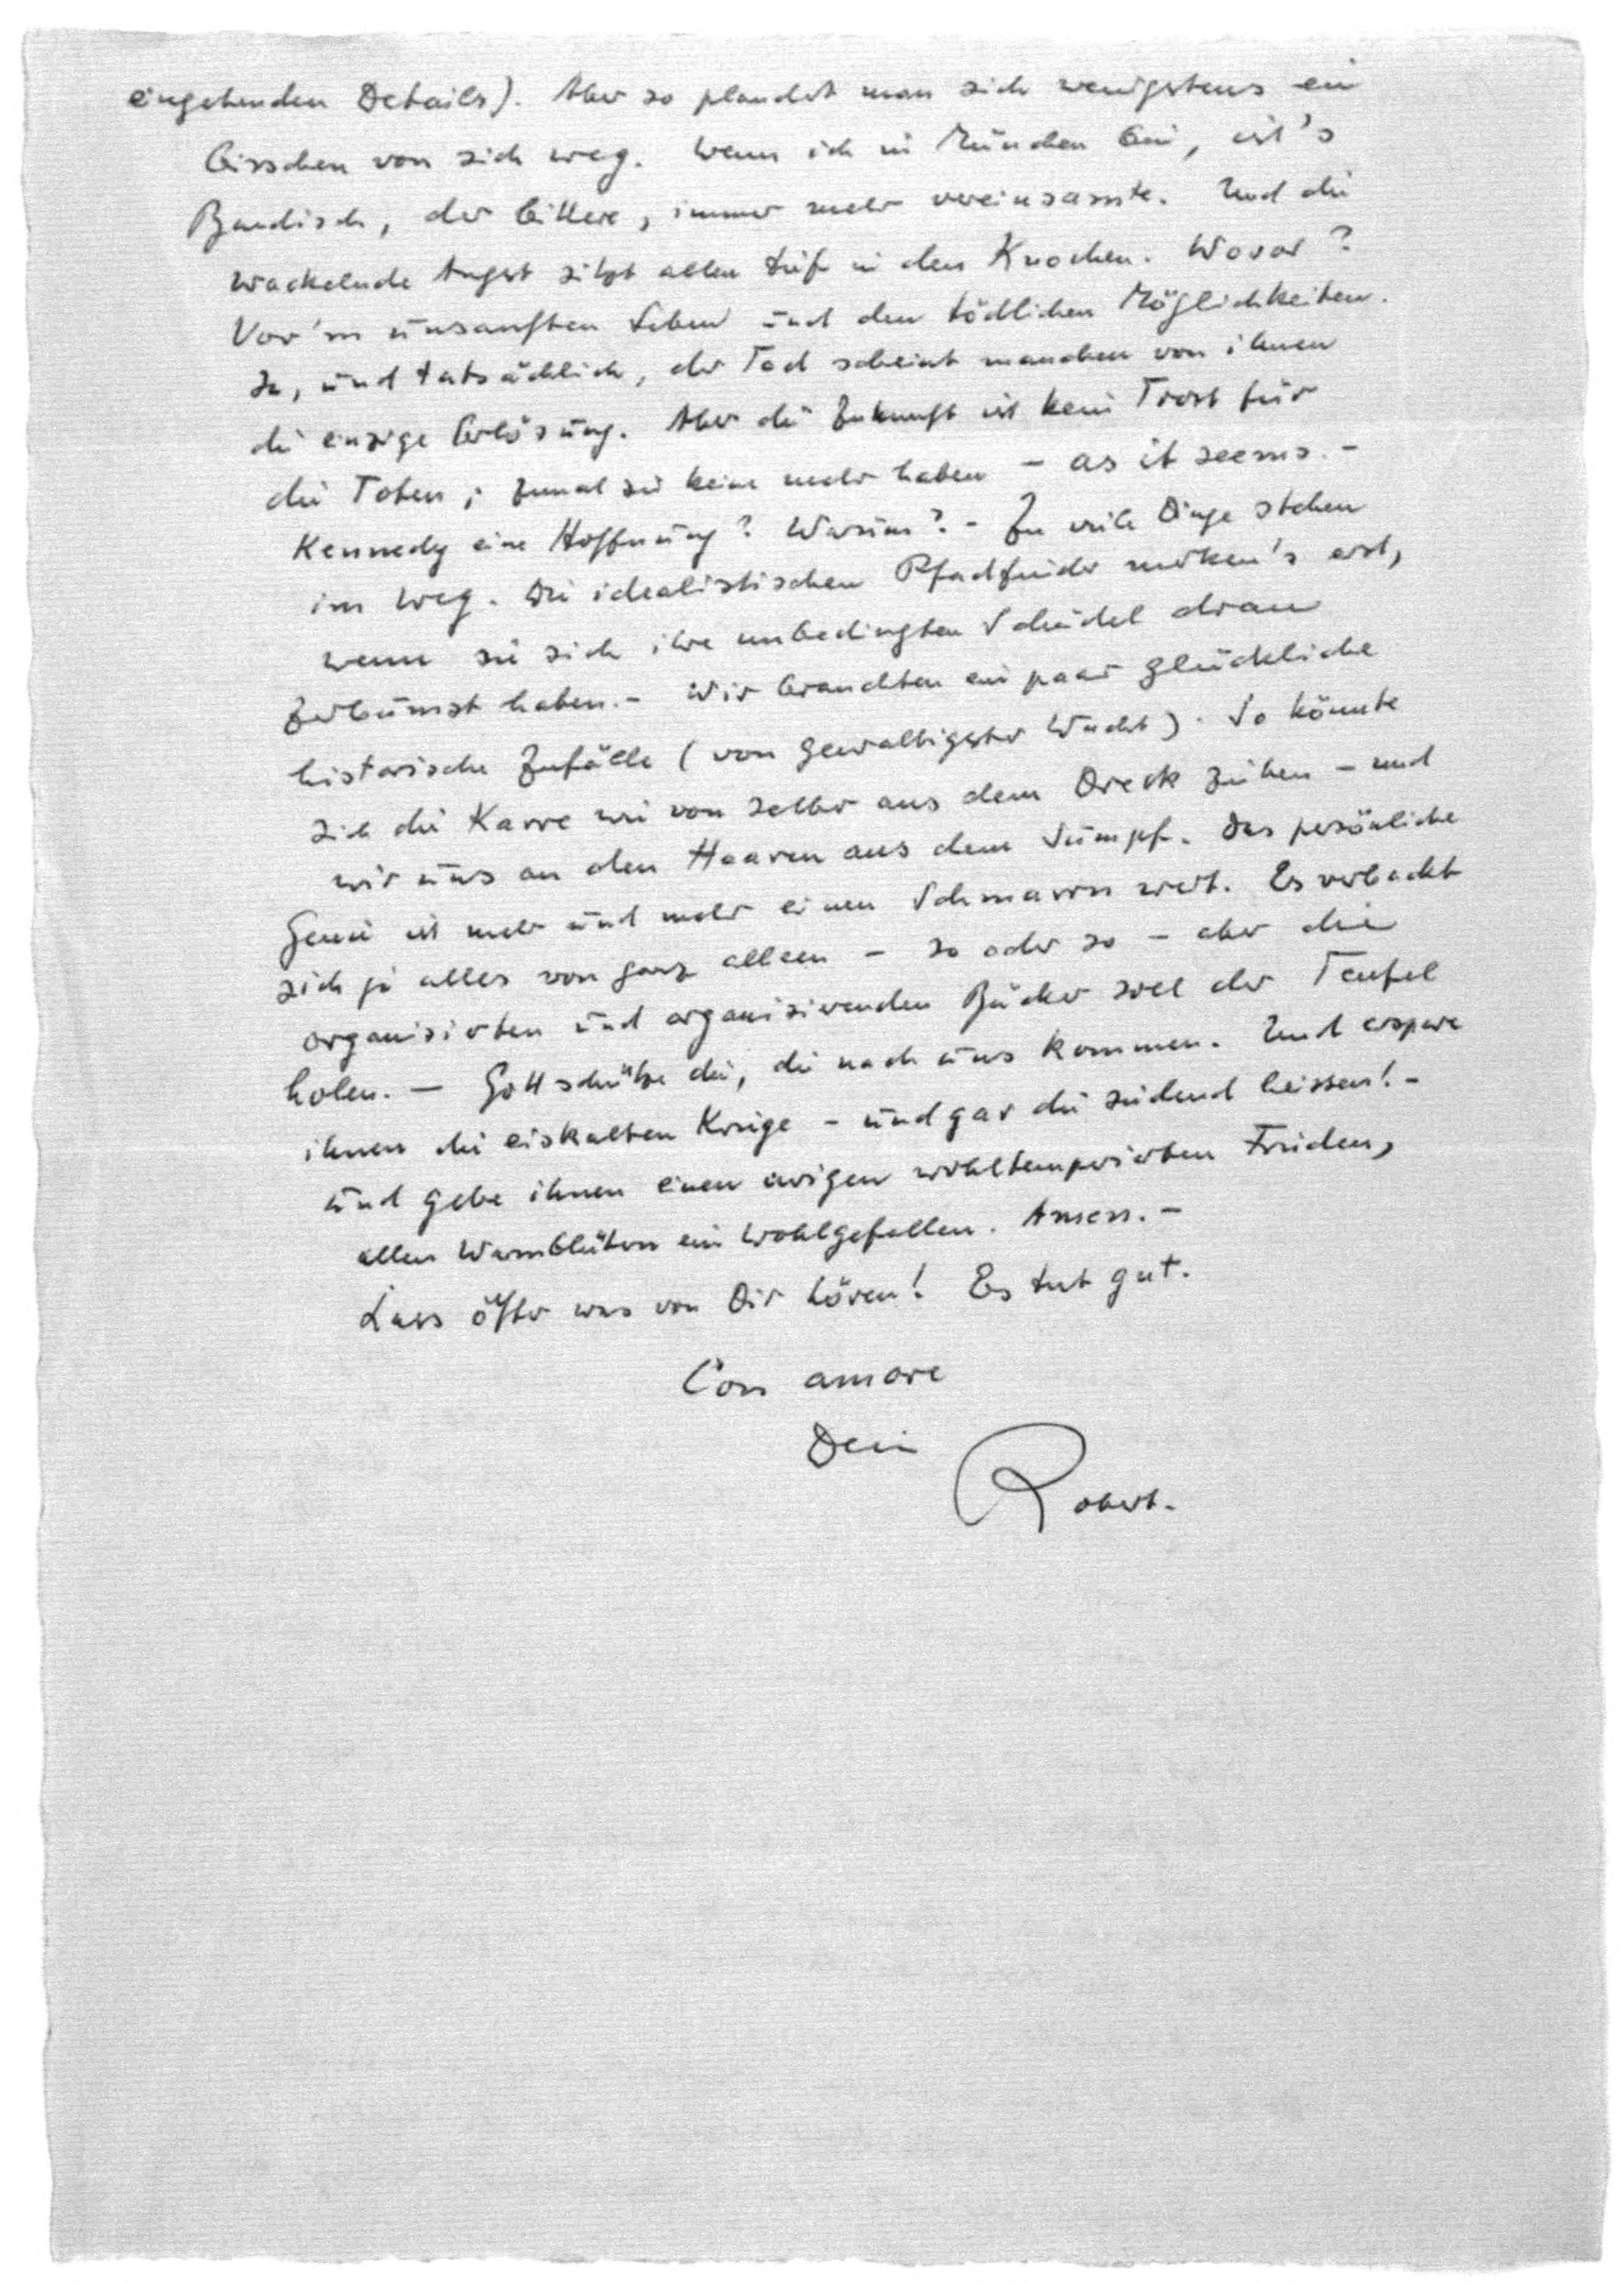 eingehenden Details). Aber so plaudert man sich wenigstens ein
bisschen von sich weg. Wenn ich in München bin, ist's
Baudisch, der bittere, immer mehr vereinsamte. Und die
wackelnde Angst sitzt allen tief in den Knochen. Wovor?
Vor'm unsanften Leben und den tödlichen Möglichkeiten.
Ja, und tatsächlich, der Tod scheint manchen von ihnen
die einzige Erlösung. Aber die Zukunft ist kein Trost für
die Toten; zumal sie keine mehr haben - as it seems. -
Kennedy eine Hoffnung? Warum? - Zu viele Dinge stehen
im Weg. Die idealistischen Pfadfinder merken's erst,
wenn sie sich ihre unbedingten Schädel dran
zerbumst haben. - Wir brauchten ein paar glückliche
historische Zufälle (von gewaltigster Wucht). So könnte
sich die Karre wie von selber aus dem Dreck ziehen - und
wir uns an den Haaren aus dem Sumpf. Das persönliche
Genie ist mehr und mehr einen Schmarrn wert. Es verbackt
sich ja alles von ganz alleen - so oder so - aber die
organisierten und organisierenden Bäcker soll der Teufel
holen. - Gott schütze die, die nach uns kommen. Und erspare
ihnen die eiskalten Kriege - und gar die siedend heissen! -
und gebe ihnen einen ewigen wohltemperierten Frieden,
allen Warmblütern ein Wohlgefallen. Amen. -
Lass öfter was von Dir hören! Es tut gut.
Con amore
Dein
Robert.